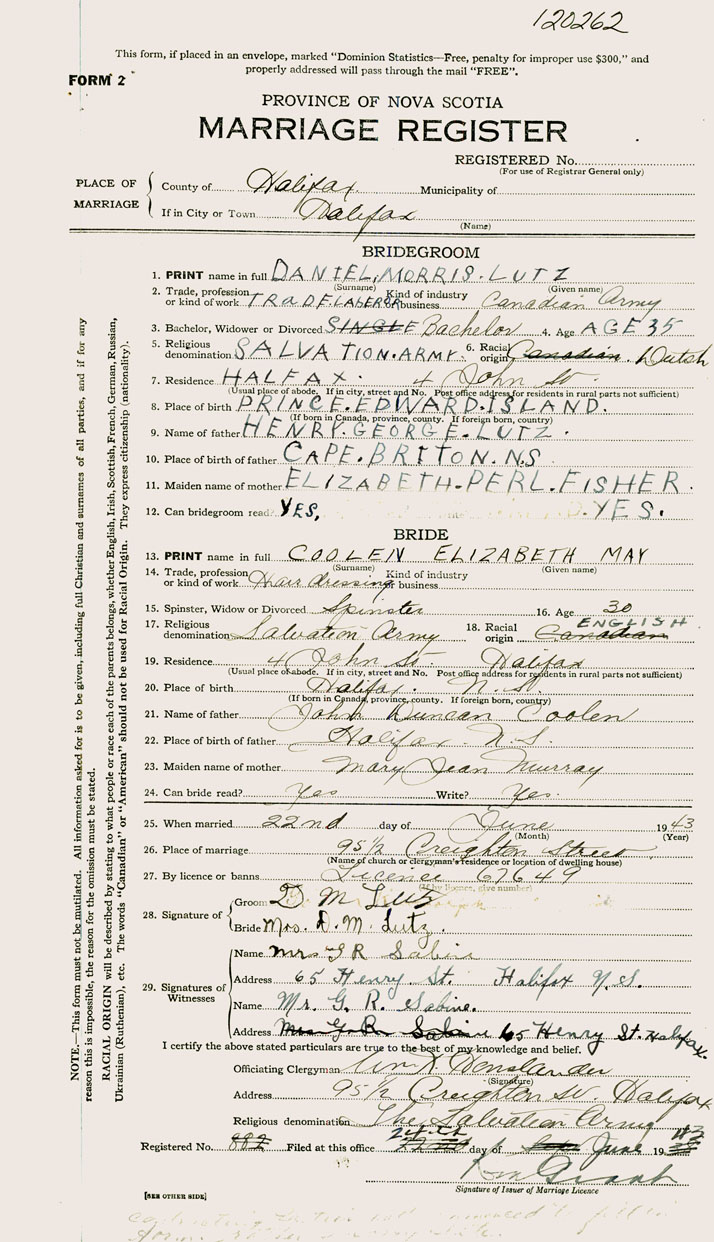 120262
This form, if placed in an envelope, marked "Dominion Statistics—Free, penalty for improper use $300," and
properly addressed will pass through the mail "FREE".
FORM 2
PROVINCE OF NOVA SCOTIA
MARRIAGE REGISTER
REGISTERED No.
(For use of Registrar General only)
PLACE OF MARRIAGE
County of Halifax Municipality of
If in City or Town Halifax
(Name)
BRIDEGROOM
1. PRINT name in full DANIEL, MORRIS. LUTZ
(Surname) (Given name)
2. Trade, profession or kind of work TRADE LABERER Kind of industry or business Canadian Army
3. Bachelor, Widower or Divorced SINGLE Bachelor 4. Age AGE 35
5. Religious denomination SALVATION. ARMY. 6. Racial origin Canadian. Dutch
7. Residence HALFAX. 4 John St.
(Usual place of abode. If in city, street and No. Post office address for residents in rural parts not sufficient)
8. Place of birth PRINCE. EDWARD. ISLAND.
(If born in Canada, province, county. If foreign born, country)
9. Name of father HENRY. GEORGE. LUTZ.
10. Place of birth of father CAPE. BRITON. N.S
11. Maiden name of mother ELIZABETH. PERL. FISHER.
12. Can bridegroom read? YES, YES.
BRIDE
13. PRINT name in full COOLEN ELIZABETH MAY
(Surname) (Given name)
14. Trade, profession or kind of work Hair dressing Kind of industry or business
15. Spinster, Widow or Divorced Spinster 16. Age 30
17. Religious denomination Salvation Army 18. Racial origin Canadian ENGLISH
19. Residence 4 John St. Halifax
(Usual place of abode. If in city, street and No. Post office address for residents in rural parts not sufficient)
20. Place of birth Halifax. N. S.
(If born in Canada, province, county. If foreign born, country)
21. Name of father John Duncan Coolen
22. Place of birth of father Halifax. N.S.
23. Maiden name of mother Mary Jean Murray
24. Can bride read? Yes Write? Yes.
25. When married 22nd day of June 1943
(Month) (Year)
26. Place of marriage 95½ Creighton Street
(Name of church or clergyman's residence or location of dwelling house)
27. By licence or banns Licence 67649
(If by licence, give number)
28. Signature of
Groom D. M Lutz
Bride Mrs. D. M. Lutz.
29. Signatures of Witnesses
Name Mrs G R Sabine
Address 65 Henry St. Halifax N.S.
Name Mr. G. R. Sabine.
Address Mrs G. R. Sabine 65 Henry St. Halifax.
I certify the above stated particulars are true to the best of my knowledge and belief.
Officiating Clergyman
(Signature)
Address 95½ Creighton St. Halifax
Religious denomination The Salvation Army
Registered No. 882 Filed at this office 24th day of June 1943
Signature of Issuer of Marriage Licence
[SEE OTHER SIDE]
NOTE.—This form must not be mutilated. All information asked for is to be given, including full Christian and surnames of all parties, and if for any
reason this is impossible, the reason for the omission must be stated.
RACIAL ORIGIN will be described by stating to what people or race each of the parents belongs, whether English, Irish, Scottish, French, German, Russian,
Ukrainian (Ruthenian), etc. The words "Canadian" or "American" should not be used for Racial Origin. They express citizenship (nationality).